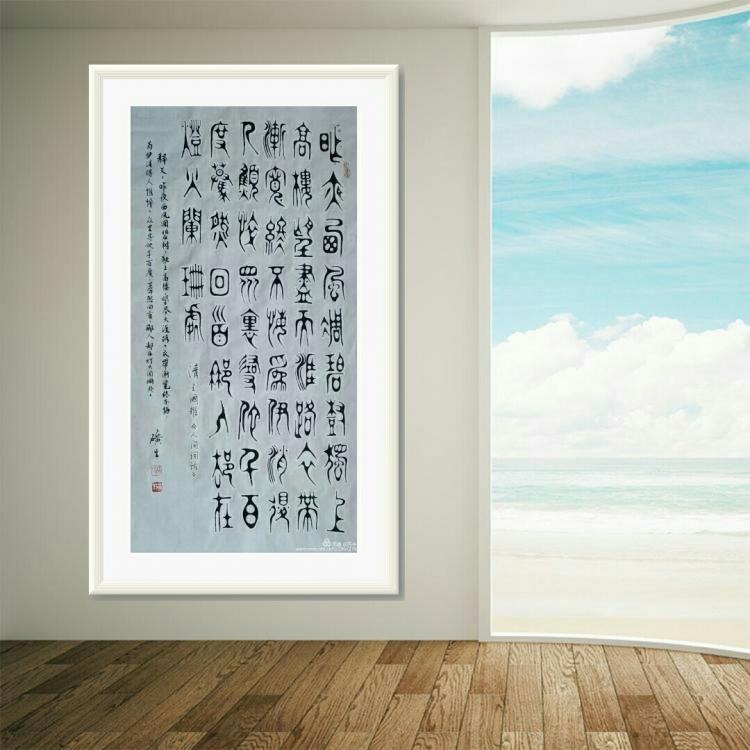 昨夜西風凋碧樹獨上
高樓望盡天涯路衣帶
漸寬終不悔為伊消得
人憔悴眾裏尋他千百
度驀然回首那人卻在
燈火闌珊處
清王國維 人间詞話
釋文。昨夜西风凋碧樹，獨上高樓，望尽天涯路。衣帶漸寬终不悔
為伊消得人憔悴。众里尋他千百度，蓦然回首，那人却在灯火闌珊处。